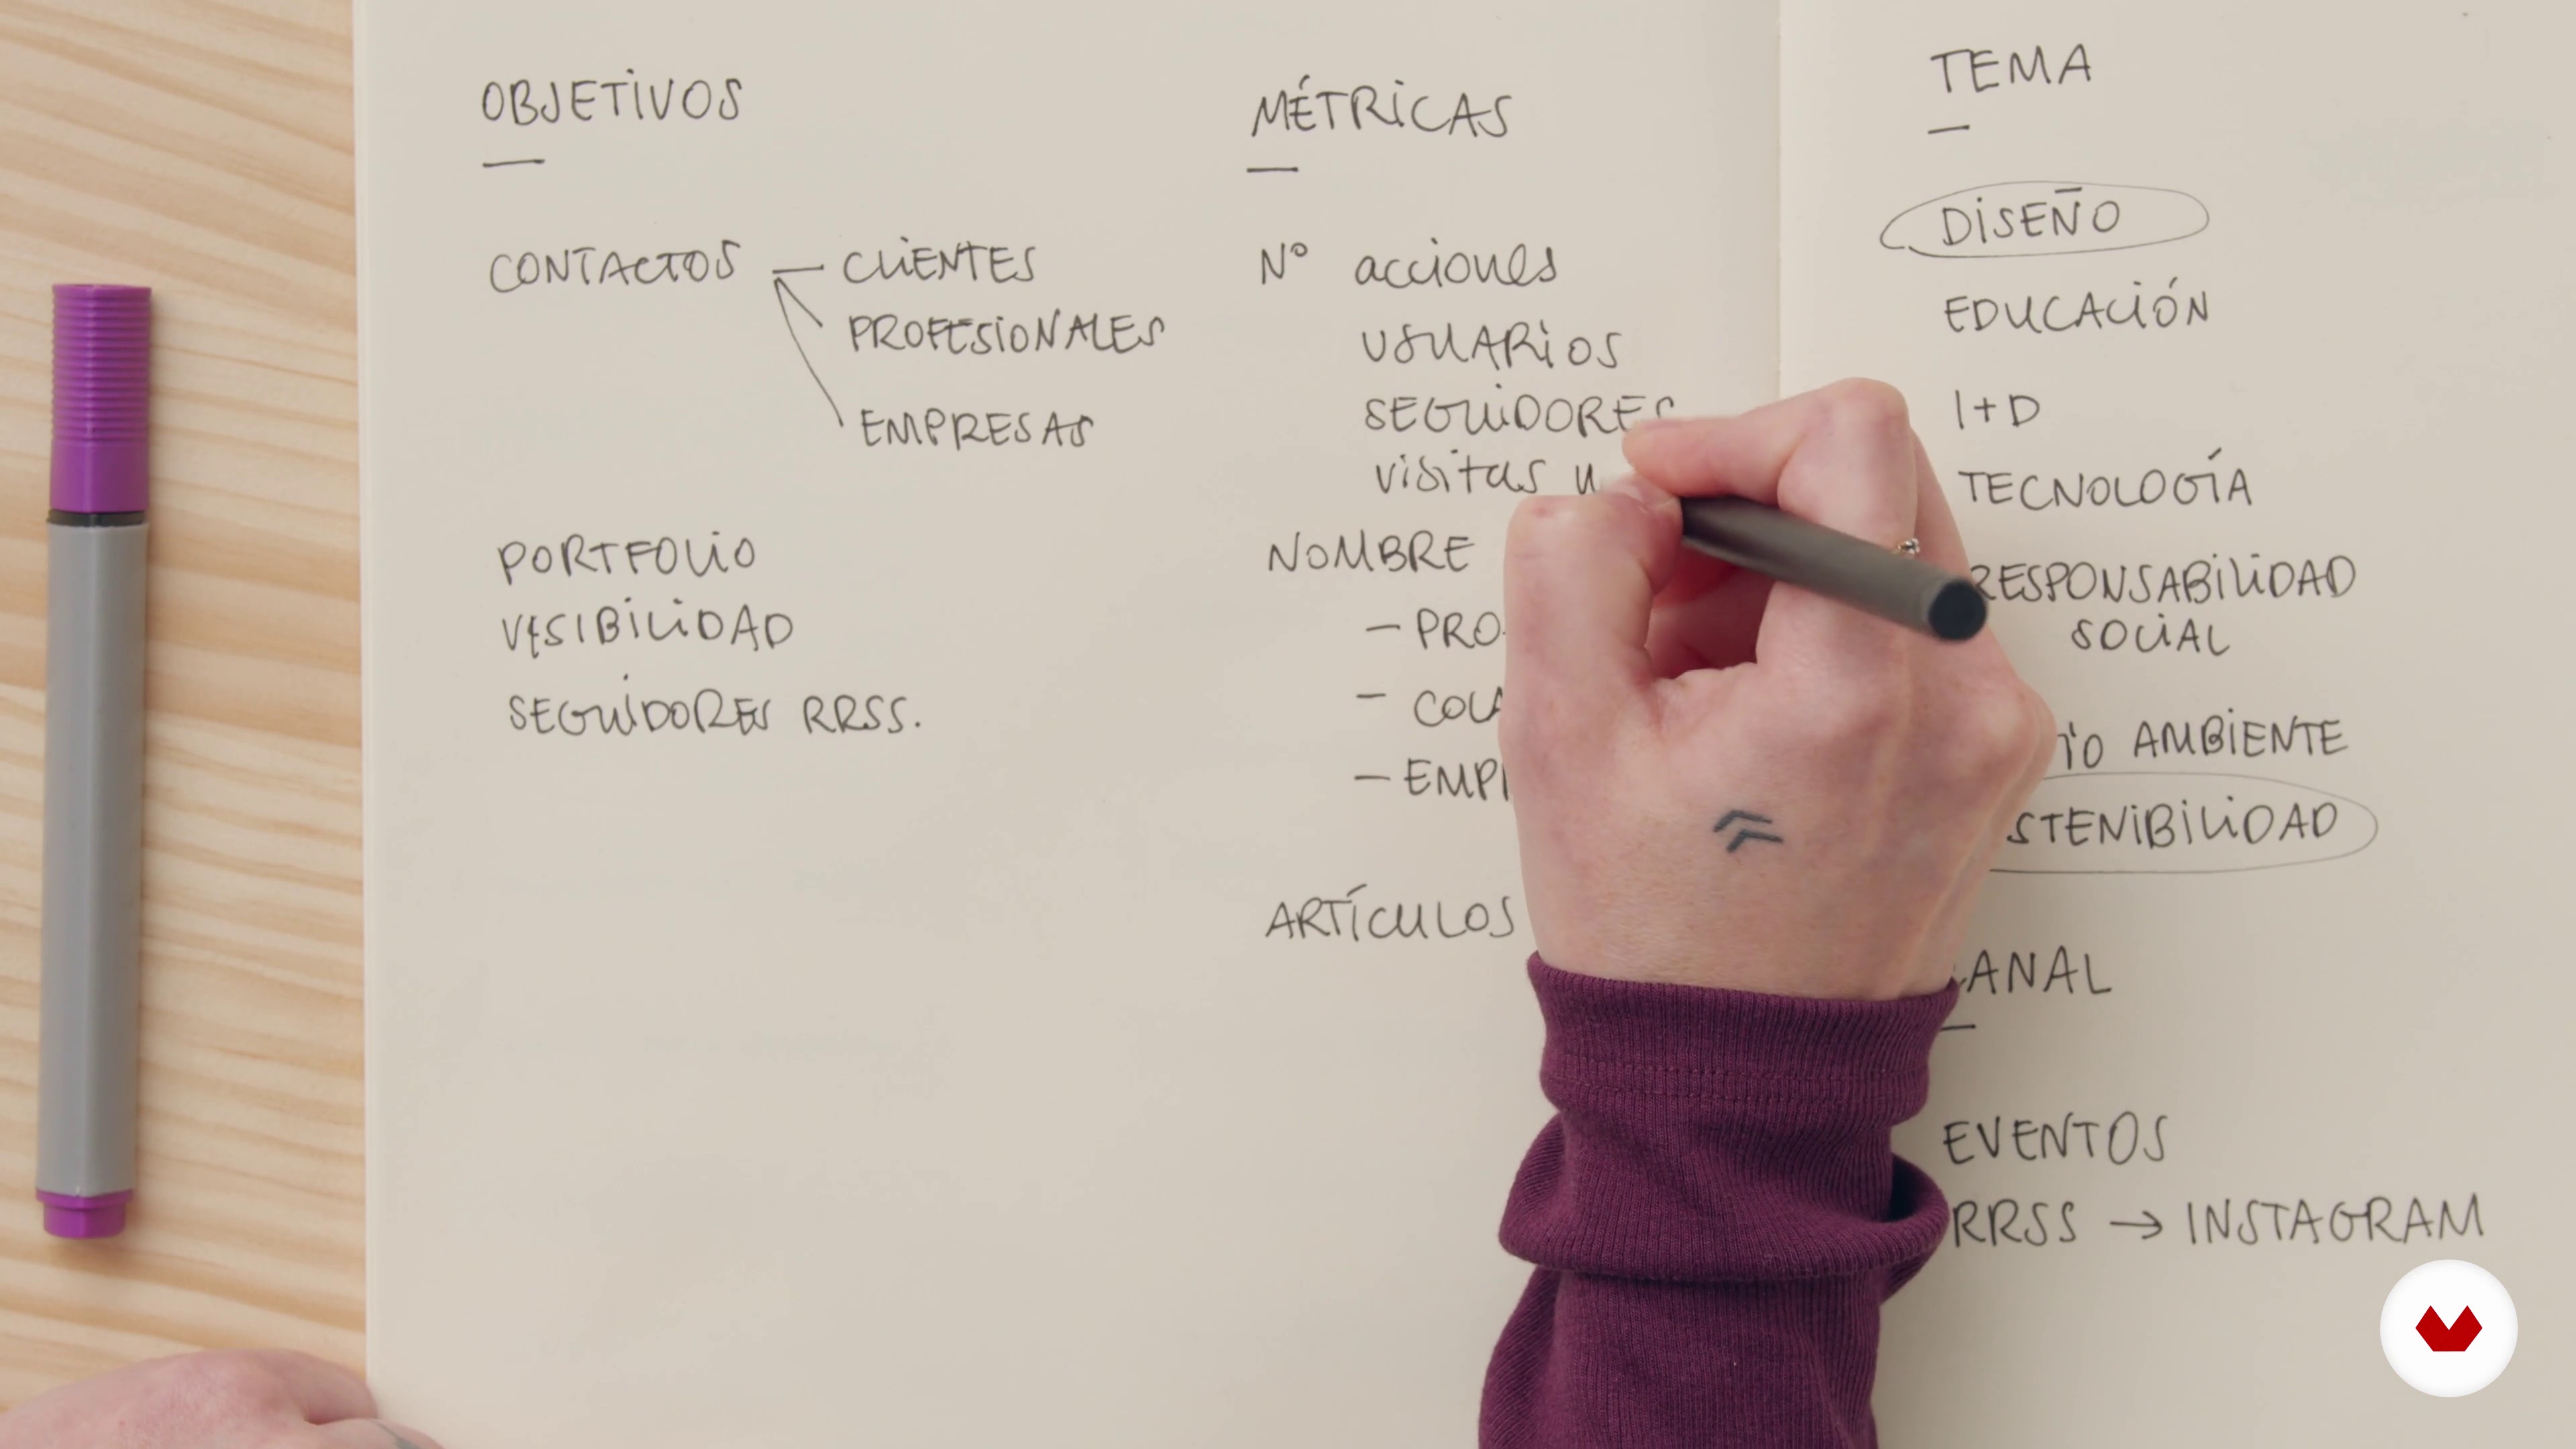 OBJETIVOS
CONTACTOS — CLIENTES
PROFESIONALES
EMPRESAS
PORTFOLIO
VISIBILIDAD
SEGUIDORES RRSS.
MÉTRICAS
Nº acciones
USUARIOS
SEGUIDORES
visitas
NOMBRE
ARTÍCULOS
TEMA
DISEÑO
EDUCACIÓN
I+D
TECNOLOGÍA
RESPONSABILIDAD
SOCIAL
AMBIENTE
EVENTOS
RRSS → INSTAGRAM